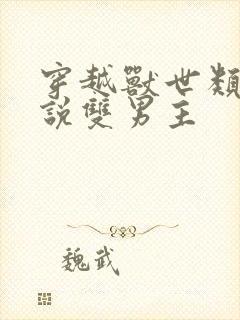 穿越獸世類
說雙男主
魏武